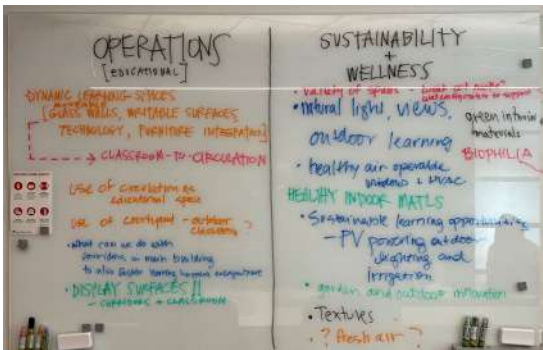 OPERATIONS
[EDUCATIONAL]
DYNAMIC LEARNING SPACES
[GLASS WALLS, WRITABLE SURFACES,
TECHNOLOGY, FURNITURE INTEGRATION]
→ CLASSROOM-TO-CIRCULATION
USE OF CIRCULATION AS
educational space
USE OF COURTYARD - OUTDOOR
CLASSROOM ?
• What can we do with
corridors in main building
to also foster learning happens everywhere
• DISPLAY SURFACES!!
- CORRIDORS + CLASSROOM
SUSTAINABILITY
+
WELLNESS
• Variety of spaces -
• natural light, views,
outdoor learning
green interior
materials
BIOPHILIA
• healthy air operable
windows + HVAC
HEALTHY INDOOR MATLS
• Sustainable learning opportunities
- PV powering outdoor
lighting and
irrigation
• garden and outdoor innovation
• Textures
• ? fresh air ?